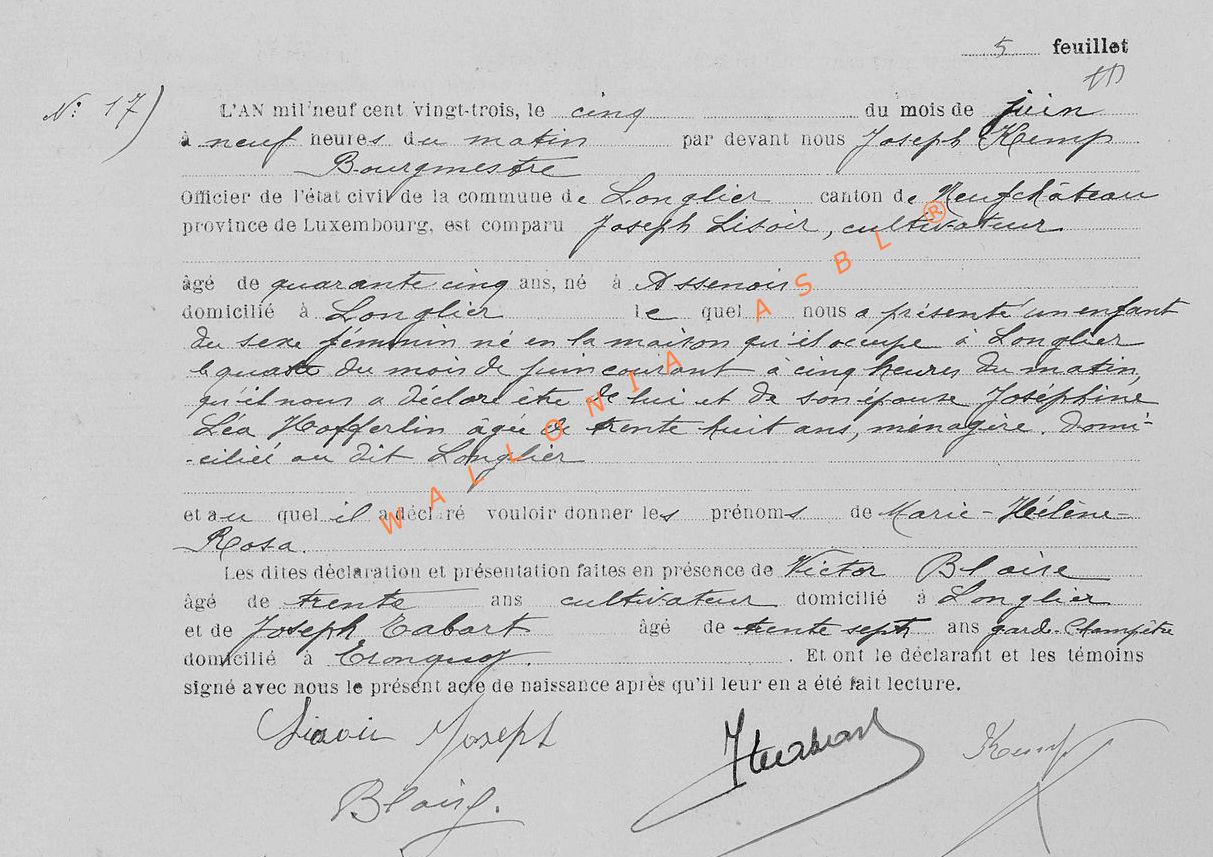 5 feuillet
N: 17)
L'AN mil neuf cent vingt-trois, le cinq du mois de juin
à neuf heures du matin par devant nous Joseph Kemp
Bourgmestre
Officier de l'état civil de la commune de Longlier canton de Neufchâteau
province de Luxembourg, est comparu Joseph Lisoir, cultivateur
âgé de quarante cinq ans, né à Assenois
domicilié à Longlier le quel nous a présenté un enfant
du sexe féminin né en la maison qu'il occupe à Longlier
le quatre du mois de juin courant à cinq heures du matin,
qu'il nous a déclaré être de lui et de son épouse Joséphine
Léa Hofferlin âgée de trente huit ans, ménagère. domi-
-ciliée au dit Longlier
et au quel il a déclaré vouloir donner les prénoms de Marie-Hélène-
Rosa.
Les dites déclaration et présentation faites en présence de Victor Blaise
âgé de trente ans cultivateur domicilié à Longlier
et de Joseph Tabart âgé de trente sept ans garde-Champêtre
domicilié à Tronquoy. Et ont le déclarant et les témoins
signé avec nous le présent acte de naissance après qu'il leur en a été fait lecture.
Lisoir Joseph
Kemp
WALLONIA ASBL ®